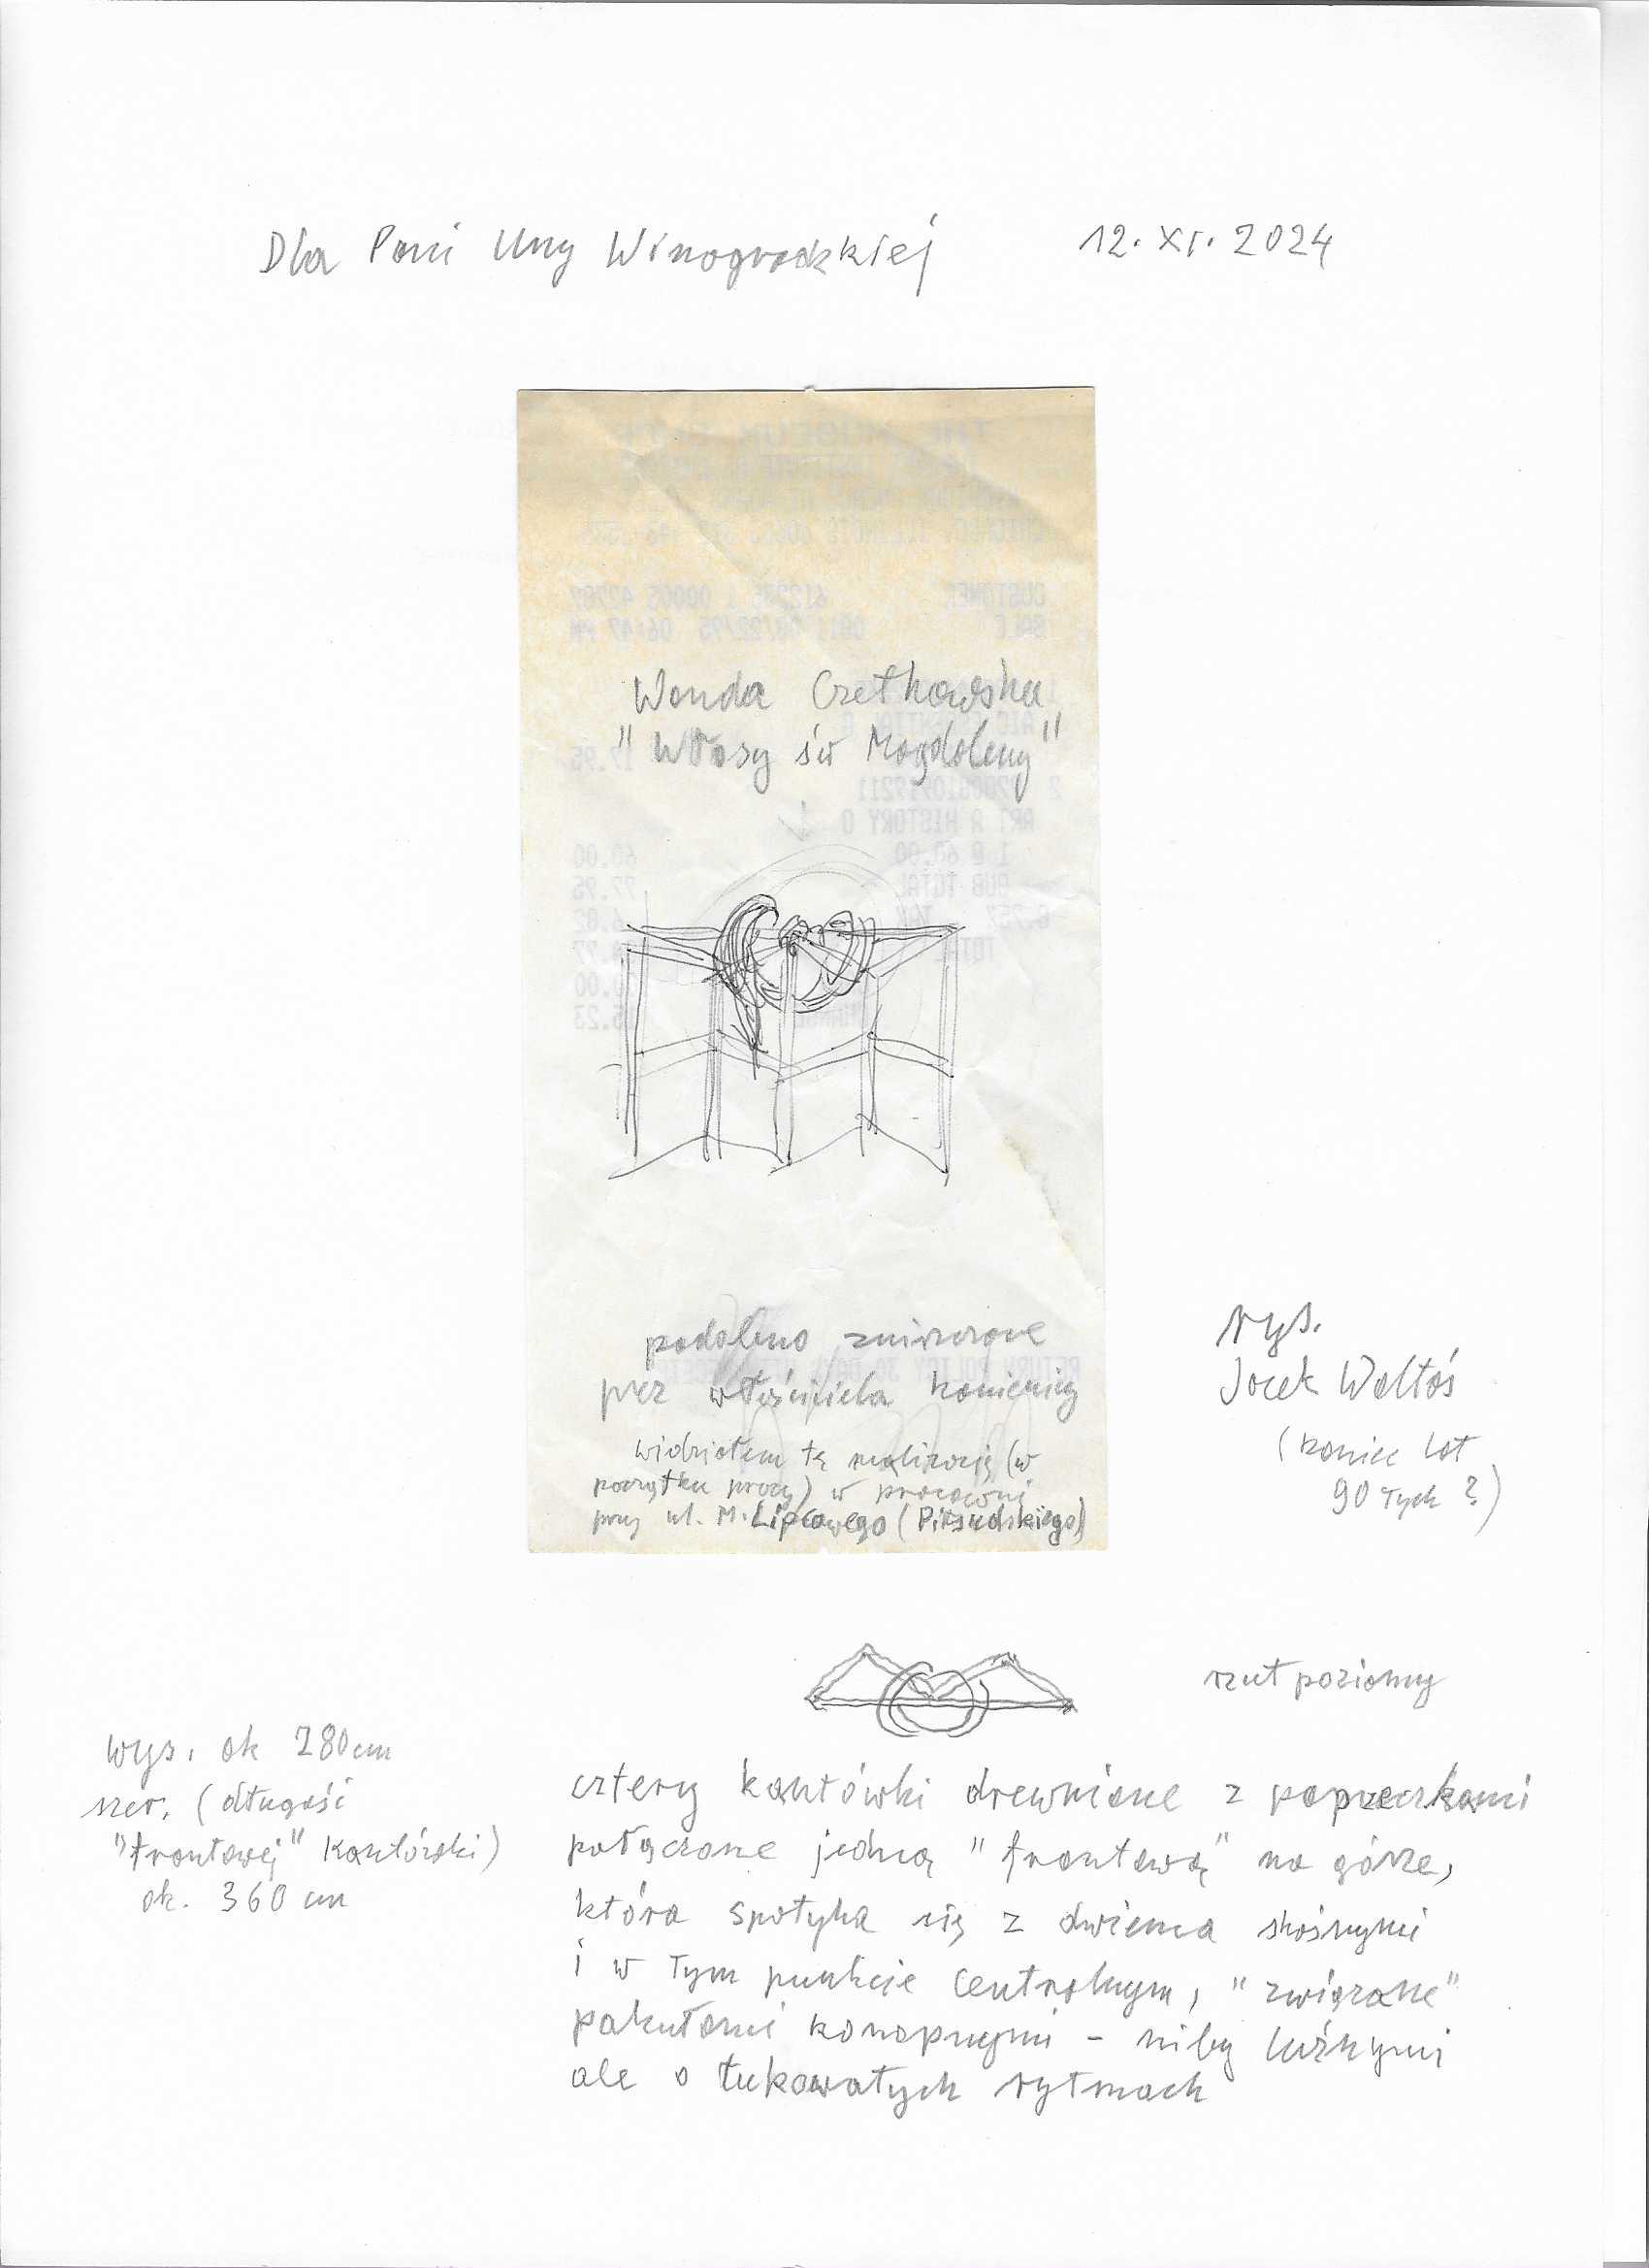 Dla Pani Uny Winogrodzkiej 12. XI. 2024
CUSTOMER
SALE 08/22/95 06:47 PM
Wanda Czełkowska
"Włosy św Magdaleny"
17.95
ART A HISTORY O
1 @ 60.00 60.00
SUB TOTAL 77.95
podobno zniszczone
przez właściciela kamienicy
widziałem tę realizację (w
początku pracy) w pracowni
przy ul. M. Lipcowego (Piłsudskiego)
rys.
Jacek Waltoś
(koniec lat
90 tych ?)
rzut poziomy
wys. ok 280 cm
szer. (długość
"frontowej" kantówki)
ok. 360 cm
cztery kantówki drewniane z poprzeczkami
połączone jedną "frontową" na górze,
która spotyka się z dwiema skośnymi
i w tym punkcie centralnym, "związane"
pakułami konopnymi – niby luźnymi
ale o łukowatych rytmach